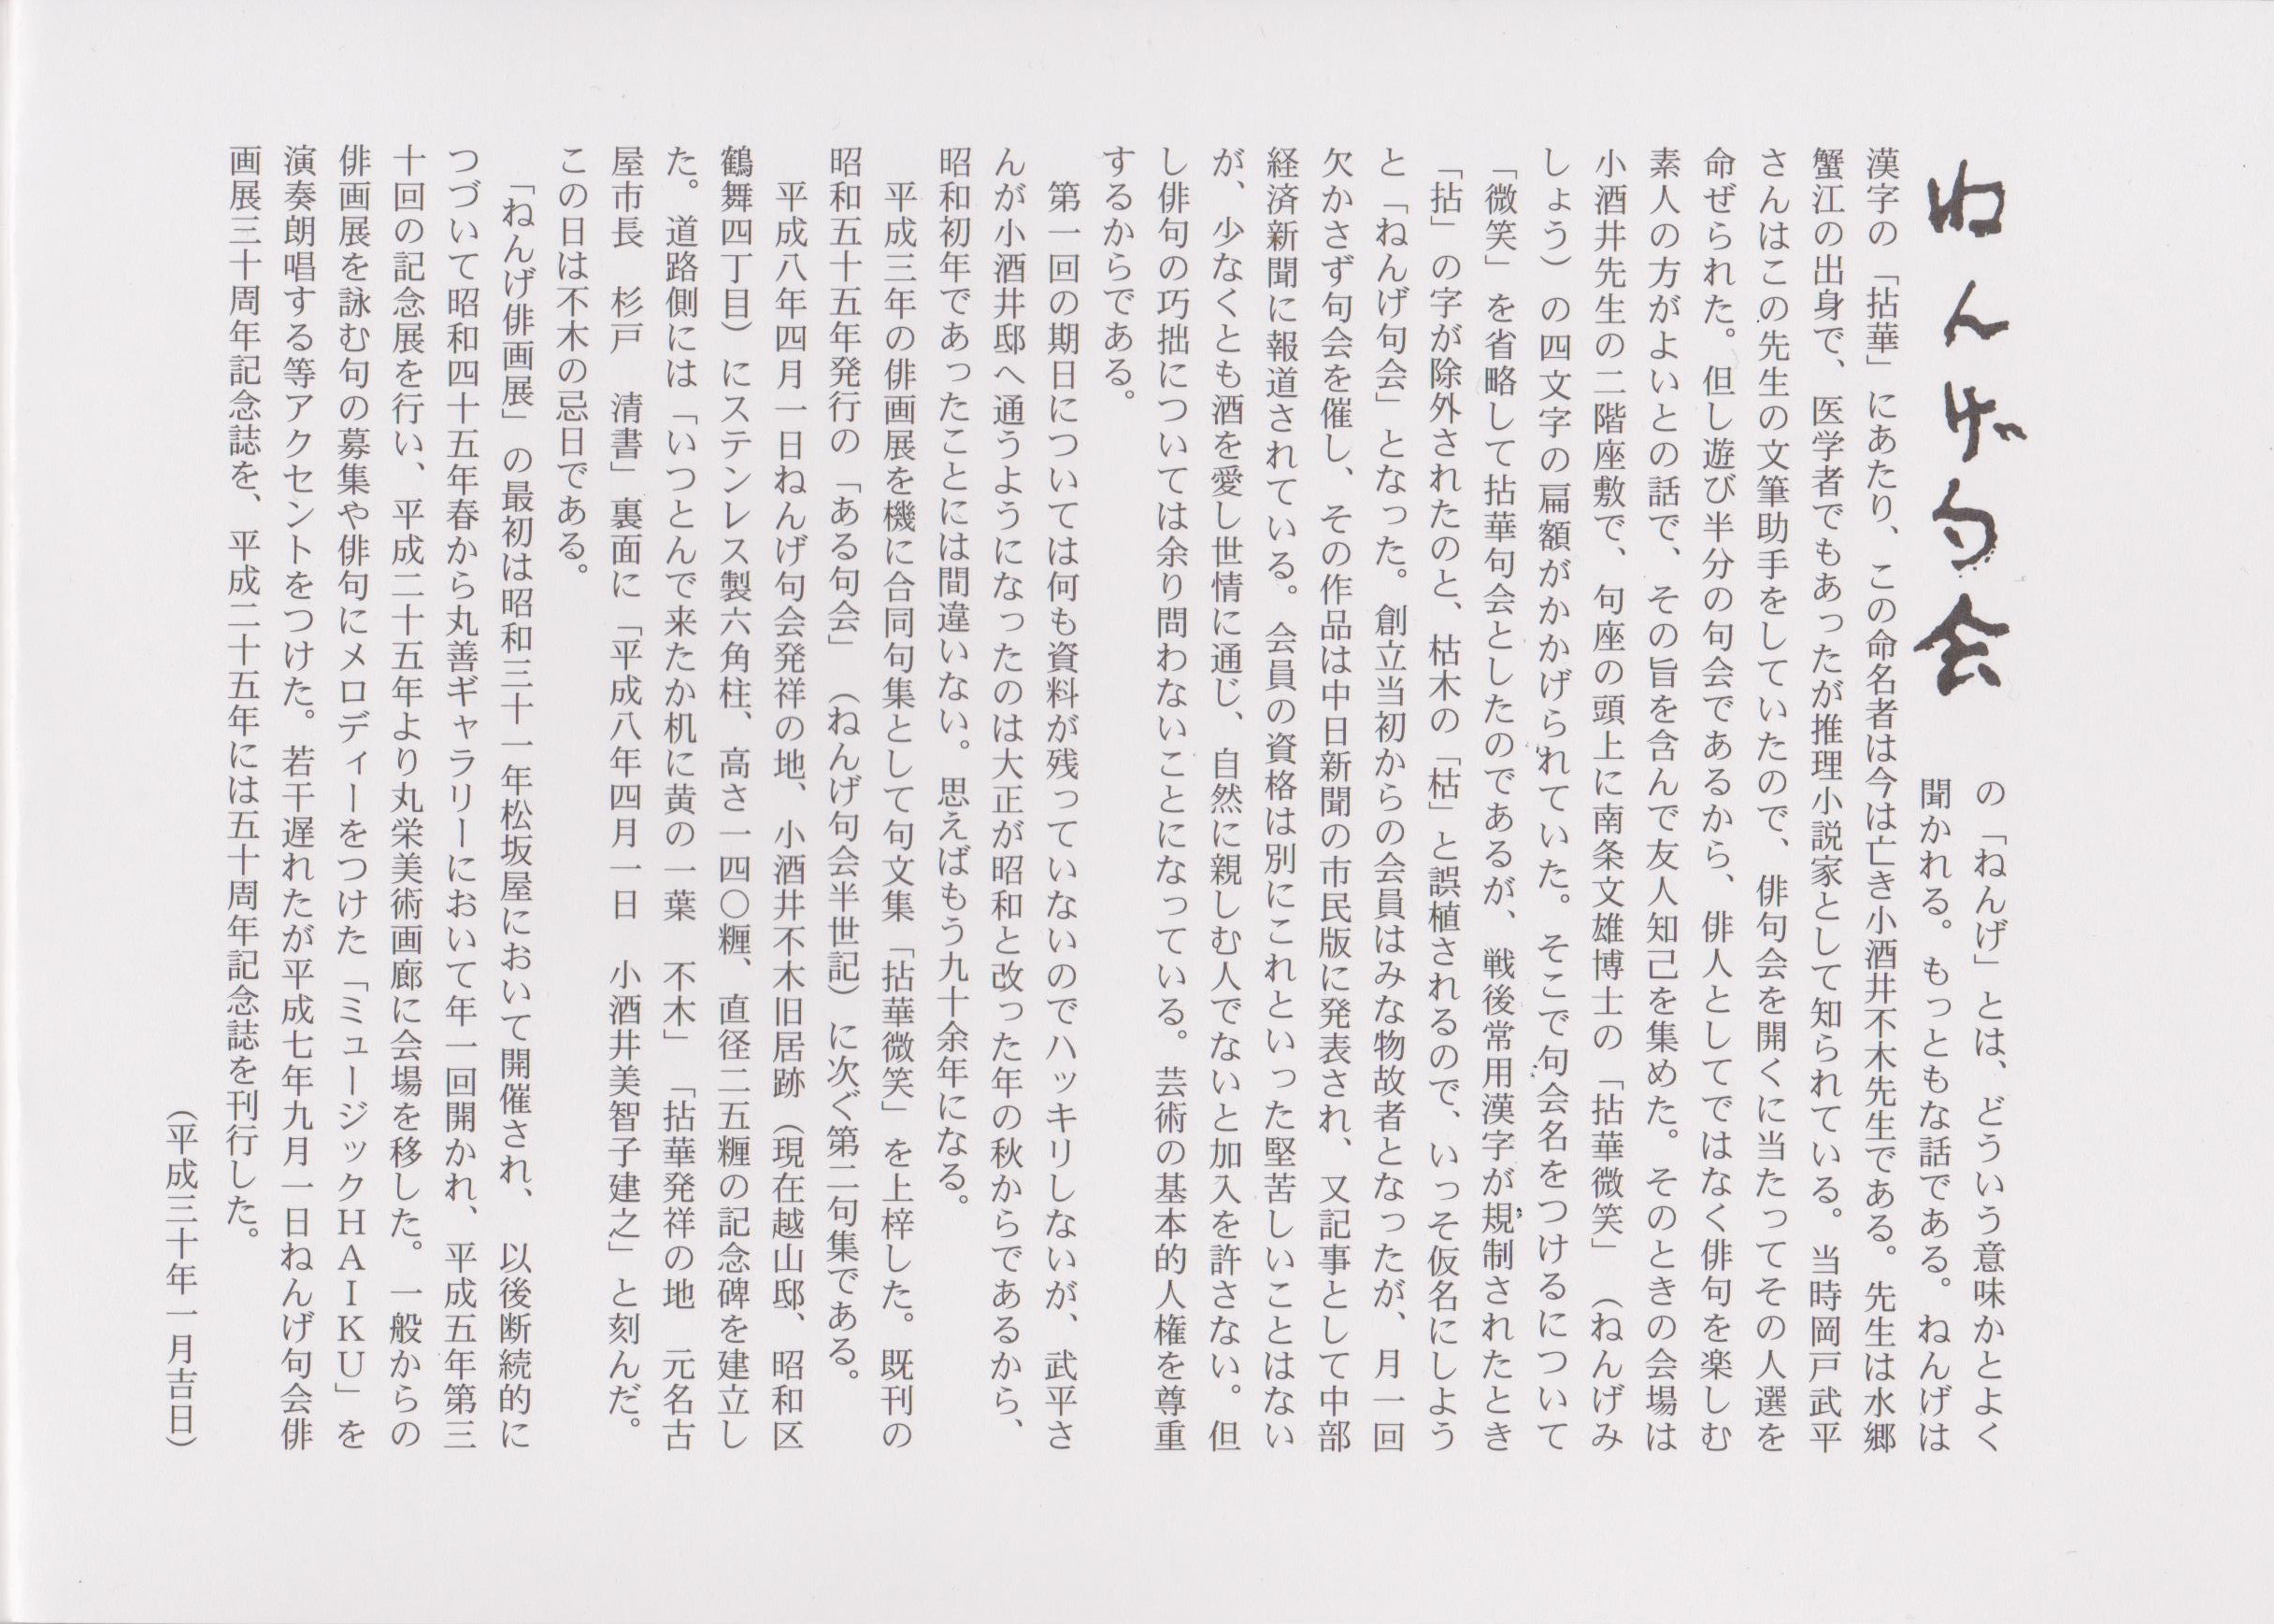 ねんげ句会
の「ねんげ」とは、どういう意味かとよく
聞かれる。もっともな話である。ねんげは
漢字の「拈華」にあたり、この命名者は今は亡き小酒井不木先生である。先生は水郷
蟹江の出身で、医学者でもあったが推理小説家として知られている。当時岡戸武平
さんはこの先生の文筆助手をしていたので、俳句会を開くに当たってその人選を
命ぜられた。但し遊び半分の句会であるから、俳人としてではなく俳句を楽しむ
素人の方がよいとの話で、その旨を含んで友人知己を集めた。そのときの会場は
小酒井先生の二階座敷で、句座の頭上に南条文雄博士の「拈華微笑」（ねんげみ
しょう）の四文字の扁額がかかげられていた。そこで句会名をつけるについて
「微笑」を省略して拈華句会としたのであるが、戦後常用漢字が規制されたとき
「拈」の字が除外されたのと、枯木の「枯」と誤植されるので、いっそ仮名にしよう
と「ねんげ句会」となった。創立当初からの会員はみな物故者となったが、月一回
欠かさず句会を催し、その作品は中日新聞の市民版に発表され、又記事として中部
経済新聞に報道されている。会員の資格は別にこれといった堅苦しいことはない
が、少なくとも酒を愛し世情に通じ、自然に親しむ人でないと加入を許さない。但
し俳句の巧拙については余り問わないことになっている。芸術の基本的人権を尊重
するからである。
第一回の期日については何も資料が残っていないのでハッキリしないが、武平さ
んが小酒井邸へ通うようになったのは大正が昭和と改った年の秋からであるから、
昭和初年であったことには間違いない。思えばもう九十余年になる。
平成三年の俳画展を機に合同句集として句文集「拈華微笑」を上梓した。既刊の
昭和五十五年発行の「ある句会」（ねんげ句会半世記）に次ぐ第二句集である。
平成八年四月一日ねんげ句会発祥の地、小酒井不木旧居跡（現在越山邸、昭和区
鶴舞四丁目）にステンレス製六角柱、高さ一四〇糎、直径二五糎の記念碑を建立し
た。道路側には「いつとんで来たか机に黄の一葉　不木」「拈華発祥の地　元名古
屋市長　杉戸　清書」裏面に「平成八年四月一日　小酒井美智子建之」と刻んだ。
この日は不木の忌日である。
「ねんげ俳画展」の最初は昭和三十一年松坂屋において開催され、以後断続的に
つづいて昭和四十五年春から丸善ギャラリーにおいて年一回開かれ、平成五年第三
十回の記念展を行い、平成二十五年より丸栄美術画廊に会場を移した。一般からの
俳画展を詠む句の募集や俳句にメロディーをつけた「ミュージックＨＡＩＫＵ」を
演奏朗唱する等アクセントをつけた。若干遅れたが平成七年九月一日ねんげ句会俳
画展三十周年記念誌を、平成二十五年には五十周年記念誌を刊行した。
（平成三十年一月吉日）